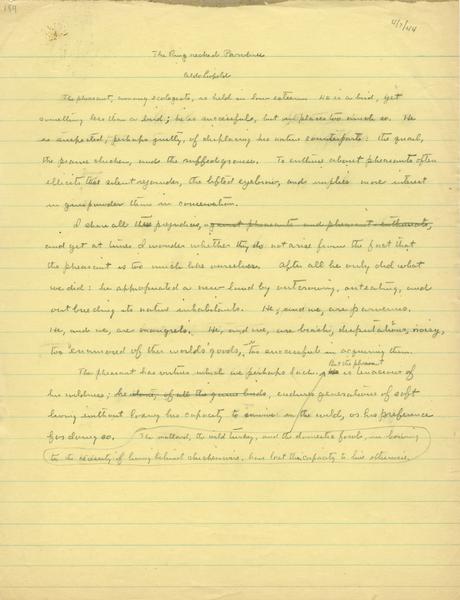 189
4/7/44
The Ring necked Parvenu
Aldo Leopold
The pheasant, among ecologists, is held in low esteem. He is a bird, yet
something less than a bird; he is successful, but in places too much so. He
is suspected, perhaps guilty, of displacing his native counterparts: the quail,
the prairie chicken, and the ruffed grouse. To enthuse about pheasants often
elicits the silent rejoinder, the lifted eyebrow, and implies more interest
in gunpowder than in conservation.
I share all these prejudices, against pheasants and pheasant enthusiasts,
and yet at times I wonder whether they do not arise from the fact that
the pheasant is too much like ourselves. After all he only did what
we did: he appropriated a new land by outcrowing, outeating, and
out breeding its native inhabitants. He, and we, are parvenus.
He, and we, are mongrels. He, and we, are brash, disputatious, noisy,
too "enamored of the world's goods," too successful in acquiring them.
The pheasant has virtues which we perhaps lack. But the pheasant
He is tenacious of
his wildness; he alone, of all the game birds, endures generations of soft
living without losing his capacity to survive in the wild, or his preference
for doing so. The mallard, the wild turkey, and the domestic fowls, in bowing
to the necessity of living behind chickenwire, have lost the capacity to live otherwise.